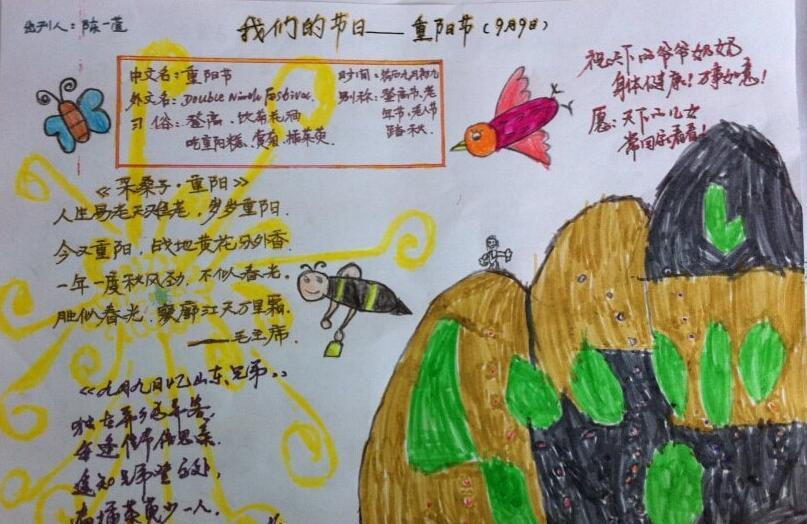 出刊人：陈一萱
我们的节日——重阳节（9月9日）
中文名：重阳节
外文名：Double Ninth Festival
习俗：登高、饮菊花酒
吃重阳糕、赏菊、插茱萸
时间：农历九月初九
别称：登高节、老
年节、老人节
踏秋
祝天下的爷爷奶奶
身体健康！万事如意！
愿：天下的儿女
常回家看看！
《采桑子·重阳》
人生易老天难老，岁岁重阳.
今又重阳，战地黄花分外香.
一年一度秋风劲，不似春光。
胜似春光，寥廓江天万里霜.
——毛主席.
《九月九日忆山东兄弟。》
独在异乡为异客，
每逢佳节倍思亲.
遥知兄弟登高处，
遍插茱萸少一人.